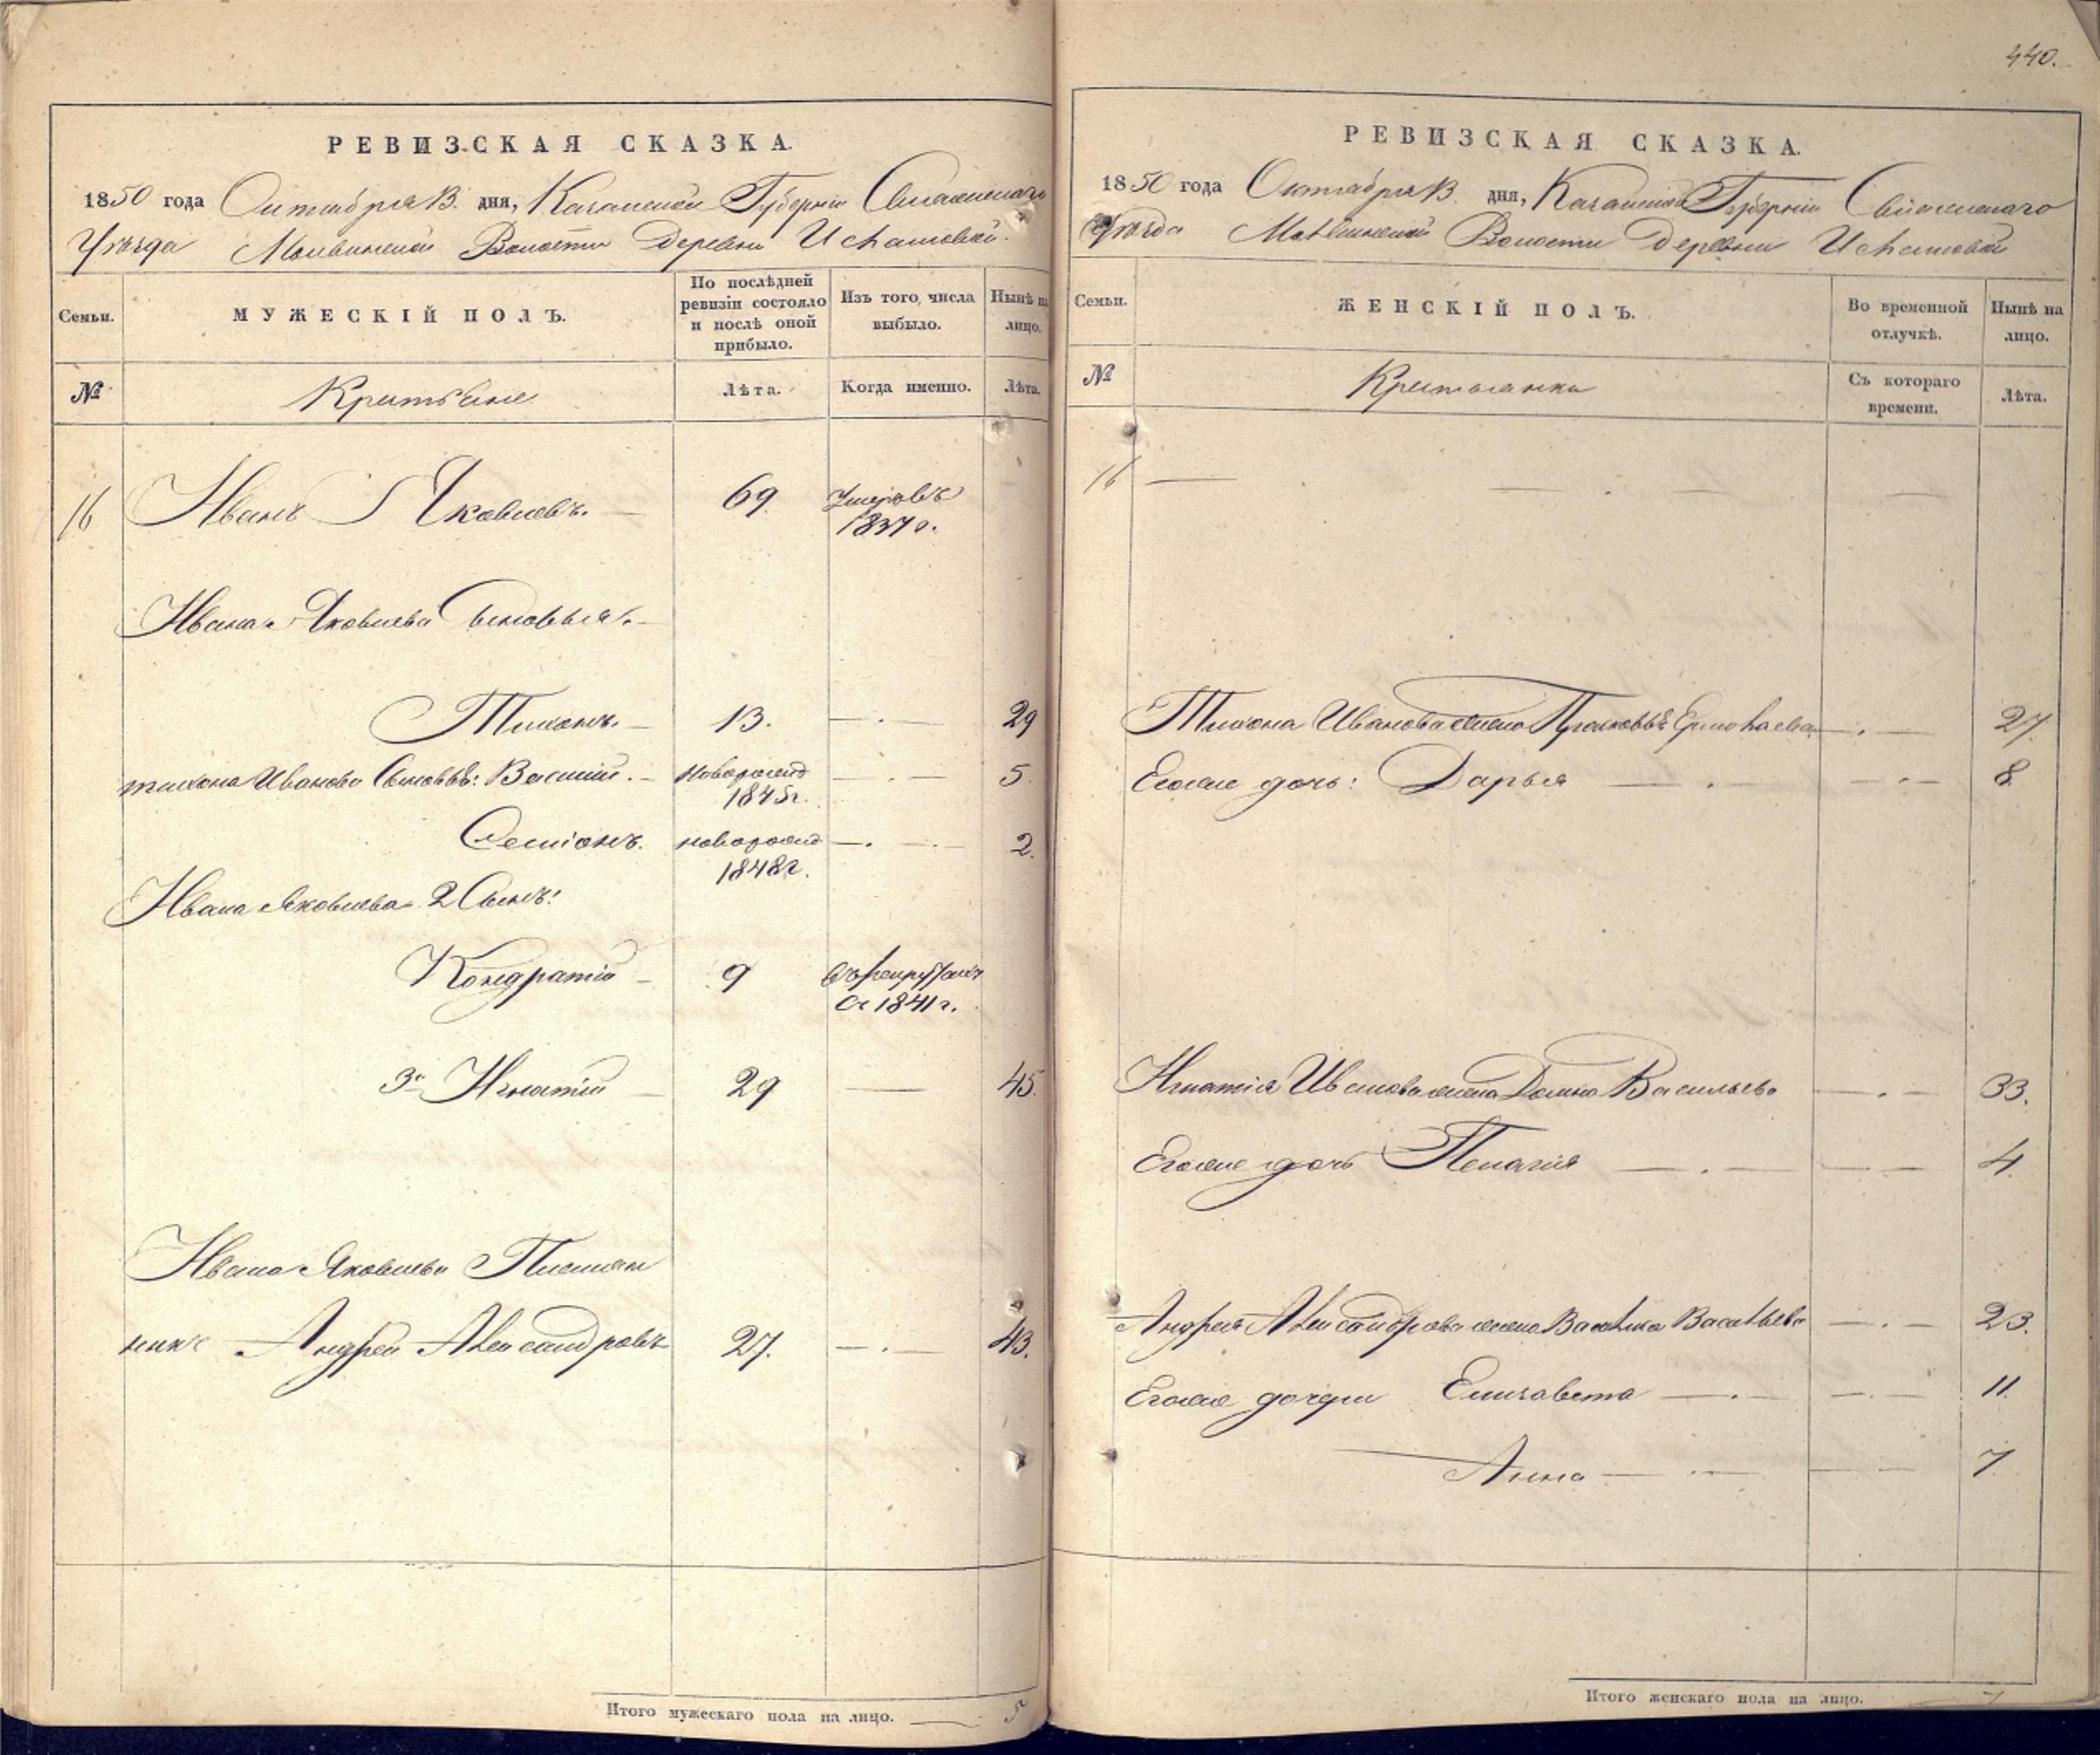 РЕВИЗСКАЯ СКАЗКА.
1850 года Октября 13. дня, Казанской Губерніи Свіяжскаго
Уѣзда Волости Деревни
Семьи.
МУЖЕСКІЙ ПОЛЪ.
По послѣдней ревизіи состояло и послѣ оной прибыло.
Изъ того числа выбыло.
Нынѣ на лицо.
№
Крестьяне
Лѣта.
Когда именно.
Лѣта.
16 Иванъ Яковлевъ. 69 Умеръ въ
1837 г.
Ивана Яковлева Сыновья.
Тихонъ. 13. 29
Тихона Иванова Сыновья: Василій. 5.
1845 г.
Семіонъ. 2.
1848 г.
Ивана Яковлева 2 Сынъ:
Кондратій 9
1841 г.
3й Игнатій 29 45.
Ивана Яковлева Племян
никъ Андрей Александровъ 27. 43.
Итого мужескаго пола на лицо. 5
440.
РЕВИЗСКАЯ СКАЗКА.
1850 года Октября 13. дня, Казанской Губерніи Свіяжскаго
Уѣзда Волости Деревни
Семьи.
ЖЕНСКІЙ ПОЛЪ.
Во временной отлучкѣ.
Нынѣ на лицо.
№
Съ котораго времени.
Лѣта.
16
Тихона Иванова жена 27.
Егоже дочь: Дарья 8.
Игнатія Иванова жена Домна Васильева 33.
Егоже дочь Пелагія 4.
Андрея Александрова жена Васильева 23.
Егоже дочери Елизавета 11.
Анна 7
Итого женскаго пола на лицо. 7